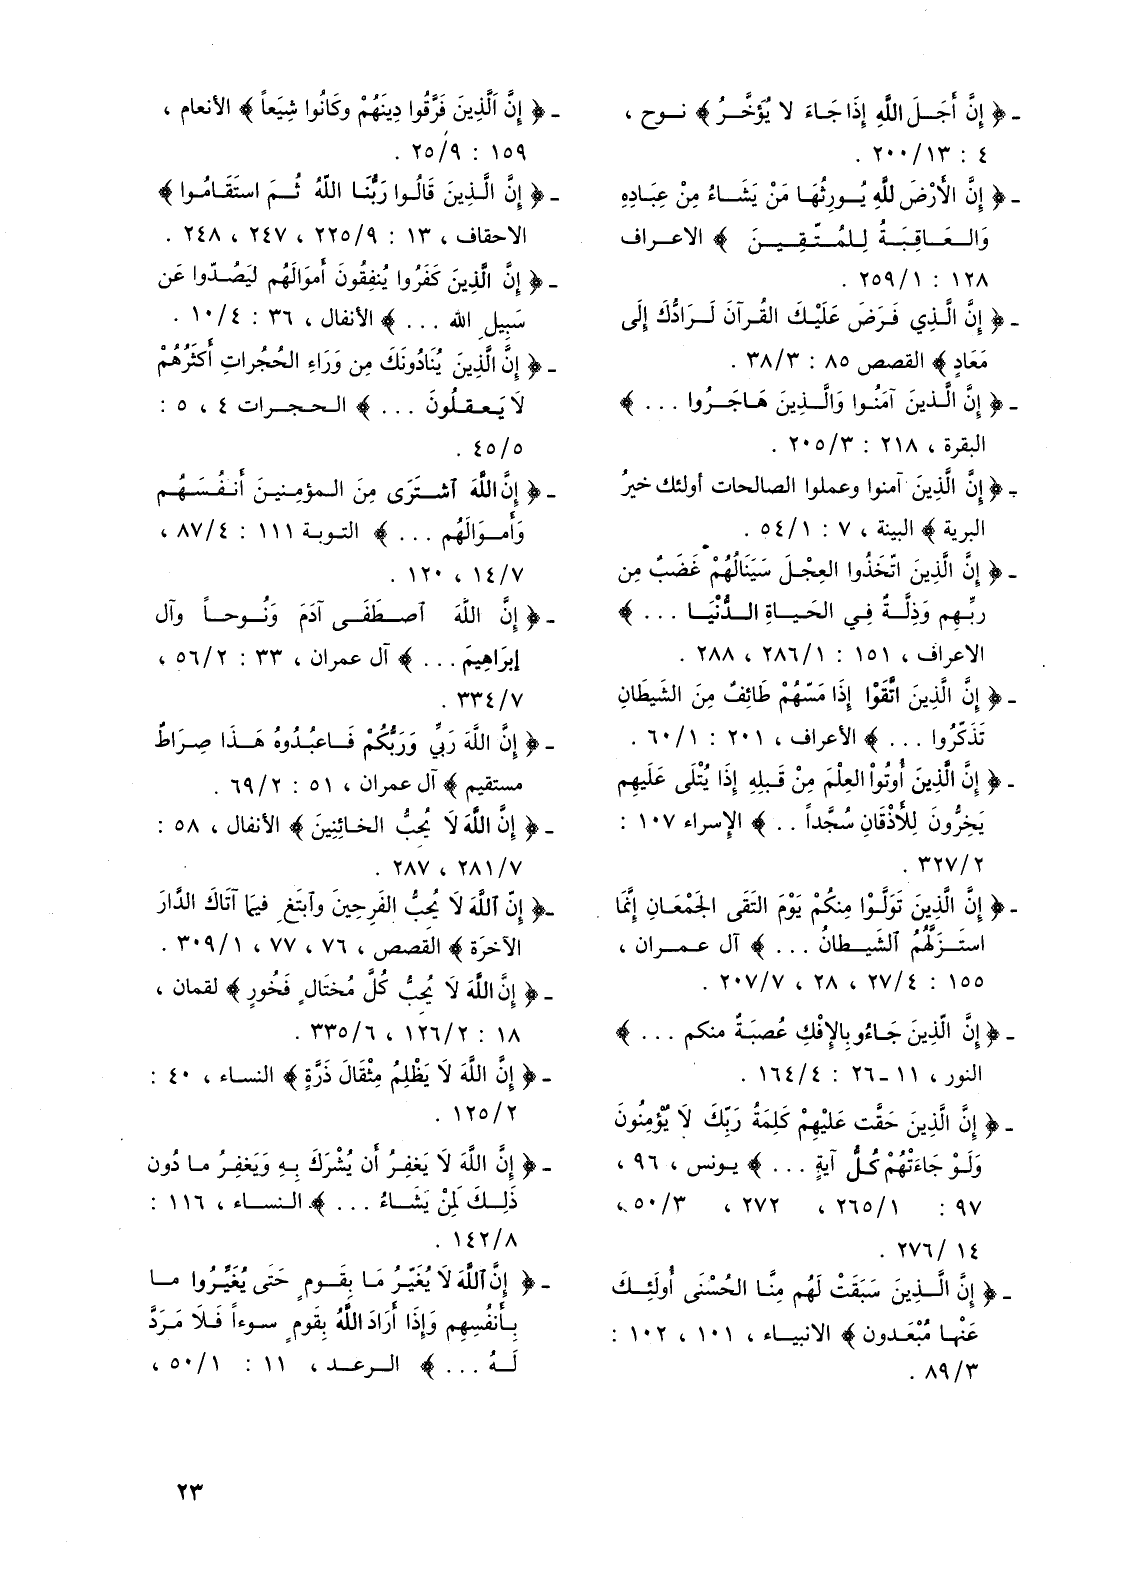 ـ ﴿ إِنَّ أَجَلَ اللَّهِ إِذَا جَاءَ لا يُؤَخَّرُ ﴾ نوح ،
٤ : ٢٠٠/١٣ .
ـ ﴿ إِنَّ الأَرْضَ للَّهِ يُورِثُهَا مَنْ يَشَاءُ مِنْ عِبَادِهِ
وَالعَاقِبَةُ لِلمُتَّقِينَ ﴾ الاعراف
١٢٨ : ٢٥٩/١ .
ـ ﴿ إِنَّ الَّذِي فَرَضَ عَلَيْكَ القُرآنَ لَرَادُّكَ إِلَى
مَعَادٍ ﴾ القصص ٨٥ : ٣٨/٣ .
ـ ﴿ إِنَّ الَّذينَ آمَنُوا وَالَّذِينَ هَاجَرُوا ... ﴾
البقرة ، ٢١٨ : ٢٠٥/٣ .
ـ ﴿ إِنَّ الَّذِينَ آمنوا وعملوا الصالحات أولئك خيرُ
البرية ﴾ البينة ، ٧ : ٥٤/١ .
ـ ﴿ إِنَّ الَّذِينَ اتّخَذُوا العِجْلَ سَيَنَالُهُمْ غَضَبٌ مِن
ربِّهِم وَذِلَّةٌ فِي الحَيَاةِ الدُّنْيَا ... ﴾
الاعراف ، ١٥١ : ٢٨٦/١ ، ٢٨٨ .
ـ ﴿ إِنَّ الَّذِينَ اتَّقَوْا إِذَا مَسّهُمْ طَائِفٌ مِنَ الشَيطَانِ
تَذَكّرُوا ... ﴾ الأعراف ، ٢٠١ : ٦٠/١ .
ـ ﴿ إِنَّ الَّذِينَ أُوتُواْ العِلْمَ مِنْ قَبلِهِ إِذَا يُتْلَى عَلَيهِم
يَخِرُّونَ لِلأَذْقَانِ سُجَّداً .. ﴾ الإسراء ١٠٧ :
٣٢٧/٢ .
ـ ﴿ إِنَّ الَّذِينَ تَوَلَّوْا مِنكُمْ يَوْمَ التَقَى الجَمْعَانِ إِنَّمَا
استَزَلَّهُمُ ٱلشَيطانُ ... ﴾ آل عمران ،
١٥٥ : ٢٧/٤ ، ٢٨ ، ٢٠٧/٧ .
ـ ﴿ إِنَّ الّذِينَ جَاءُو بِالإفْكِ عُصبَةٌ منكم ... ﴾
النور ، ١١ ـ ٢٦ : ١٦٤/٤ .
ـ ﴿ إِنَّ الَّذِينَ حَقَّت عَلَيْهِمْ كَلِمَةُ رَبِّكَ لَا يُؤمِنُونَ
وَلَوْ جَاءَتْهُمْ كُلُّ آيةٍ ... ﴾ يونس ، ٩٦ ،
٩٧ : ٢٦٥/١ ، ٢٧٢ ، ٥٠/٣ ،
٢٧٦/١٤ .
ـ ﴿ إِنَّ الَّذِينَ سَبَقَتْ لَهُم مِنَّا الحُسْنَى أُولَئِكَ
عَنْهَا مُبْعَدون ﴾ الانبياء ، ١٠١ ، ١٠٢ :
٨٩/٣ .
ـ ﴿ إِنَّ ٱلَّذِينَ فَرَّقُوا دِينَهُمْ وكَانُوا شِيَعاً ﴾ الأنعام ،
١٥٩ : ٢٥/٩ .
ـ ﴿ إِنَّ الَّذِينَ قَالُوا رَبُّنَا اللّهُ ثُمَ استَقَامُوا ﴾
الاحقاف ، ١٣ : ٢٢٥/٩ ، ٢٤٧ ، ٢٤٨ .
ـ ﴿ إِنَّ الَّذِينَ كَفَرُوا يُنفِقُونَ أَموَالَهُم لَيَصُدّوا عَن
سَبِيلِ الله ... ﴾ الأنفال ، ٣٦ : ١٠/٤ .
ـ ﴿ إِنَّ الَّذِينَ يُنَادُونَكَ مِن وَرَاءِ الحُجُراتِ أَكثَرُهُمْ
لَا يَعقلُونَ ... ﴾ الحجرات ٤ ، ٥ :
٤٥/٥ .
ـ ﴿ إِنَّ اللَّهَ آشتَرَى مِنَ المؤمِنينَ أَنفُسَهُم
وَأَموَالَهُم ... ﴾ التوبة ١١١ : ٨٧/٤ ،
١٤/٧ ، ١٢٠ .
ـ ﴿ إِنَّ اللَّهَ آصطَفَى آدَمَ وَنُوحاً وآل
إِبرَاهِيمَ ... ﴾ آل عمران ، ٣٣ : ٥٦/٢ ،
٣٣٤/٧ .
ـ ﴿ إِنَّ اللَّهَ رَبِّي وَرَبُّكُمْ فَاعبُدُوهُ هَذَا صِرَاطٌ
مستقيم ﴾ آل عمران ، ٥١ : ٦٩/٢ .
ـ ﴿ إِنَّ اللَّهَ لَا يُحِبُّ الخَائِنِينَ ﴾ الأنفال ، ٥٨ :
٢٨١/٧ ، ٢٨٧ .
ـ ﴿ إِنّ ٱللَّهَ لَا يُحِبُّ الفَرِحِينَ وآبتَغِ فيمَا آتَاكَ الدَّارَ
الآخرَة ﴾ القصص ، ٧٦ ، ٧٧ ، ٣٠٩/١ .
ـ ﴿ إِنَّ اللَّهَ لَا يُحِبُّ كُلَّ مُختَالٍ فَخُورٍ ﴾ لقمان ،
١٨ : ١٢٦/٢ ، ٣٣٥/٦ .
ـ ﴿ إِنَّ اللَّهَ لَا يَظْلِمُ مِثْقَالَ ذَرَّةٍ ﴾ النساء ، ٤٠ :
١٢٥/٢ .
ـ ﴿ إِنَّ اللَّهَ لَا يَغفِرُ أَن يُشْرَكَ بِهِ وَيَغفِرُ ما دُون
ذَلِكَ لَمِنْ يَشَاءُ ... ﴾ النساء ، ١١٦ :
١٤٢/٨ .
ـ ﴿ إِنَّ ٱللَّهَ لَا يُغَيّرُ مَا بِقَومٍ حَتَى يُغَيِّرُوا ما
بِأَنفُسِهِم وَإِذَا أَرَادَ اللَّهُ بِقَومٍ سوءاً فَلَا مَرَدَّ
لَهُ ... ﴾ الرعد ، ١١ : ٥٠/١ ،
٢٣